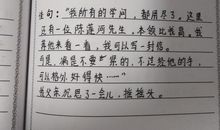 生句："我所有的学问，都用尽了。这里
还有一位陈莲河先生，本领比我高。我
荐他来看一看，我可以写一封信。
可是，病是不要紧的，不过经他的手，
可以格外好得快……"
我父亲沉思了一会儿，摇摇头。